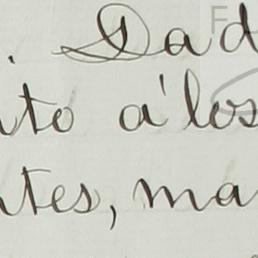 . Dad
ito á los
ntes, ma